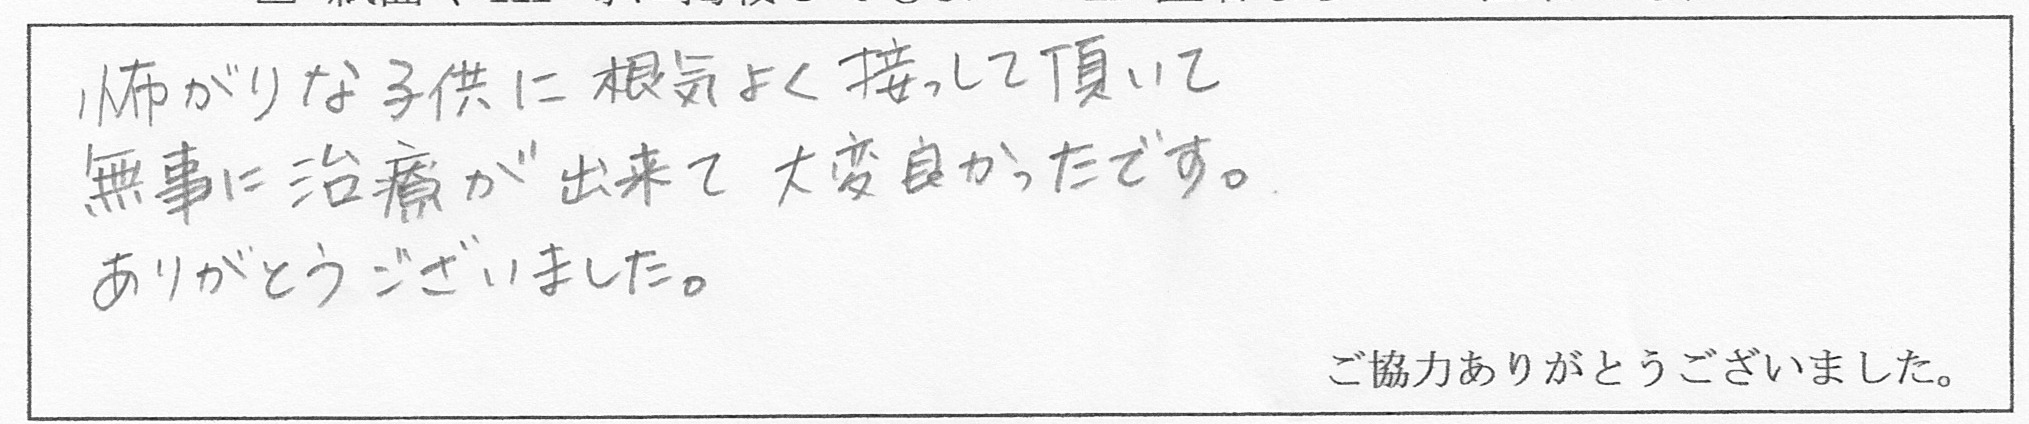 怖がりな子供に根気よく接っして頂いて
無事に治療が出来て大変良かったです。
ありがとうございました。
ご協力ありがとうございました。